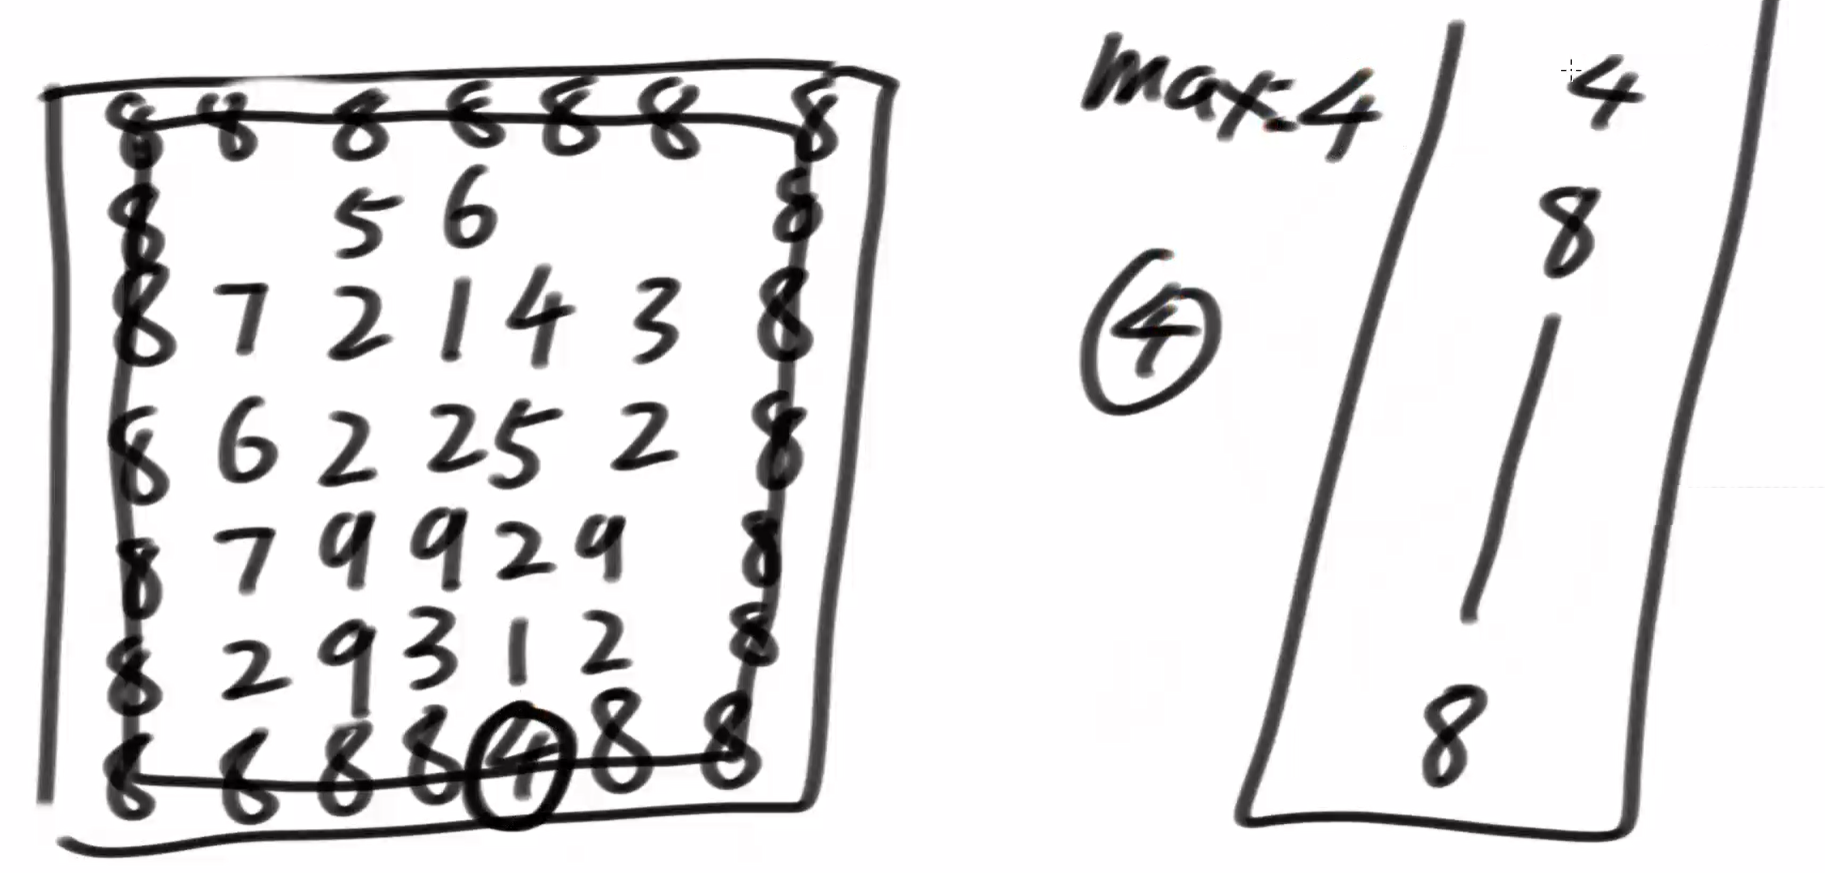 8 8 8 8 8 8 8
8 5 6 8
8 7 2 1 4 3 8
8 6 2 2 5 2 8
8 7 9 9 2 9 8
8 2 9 3 1 2 8
8 8 8 8 4 8 8
max.4
4
4
8
8